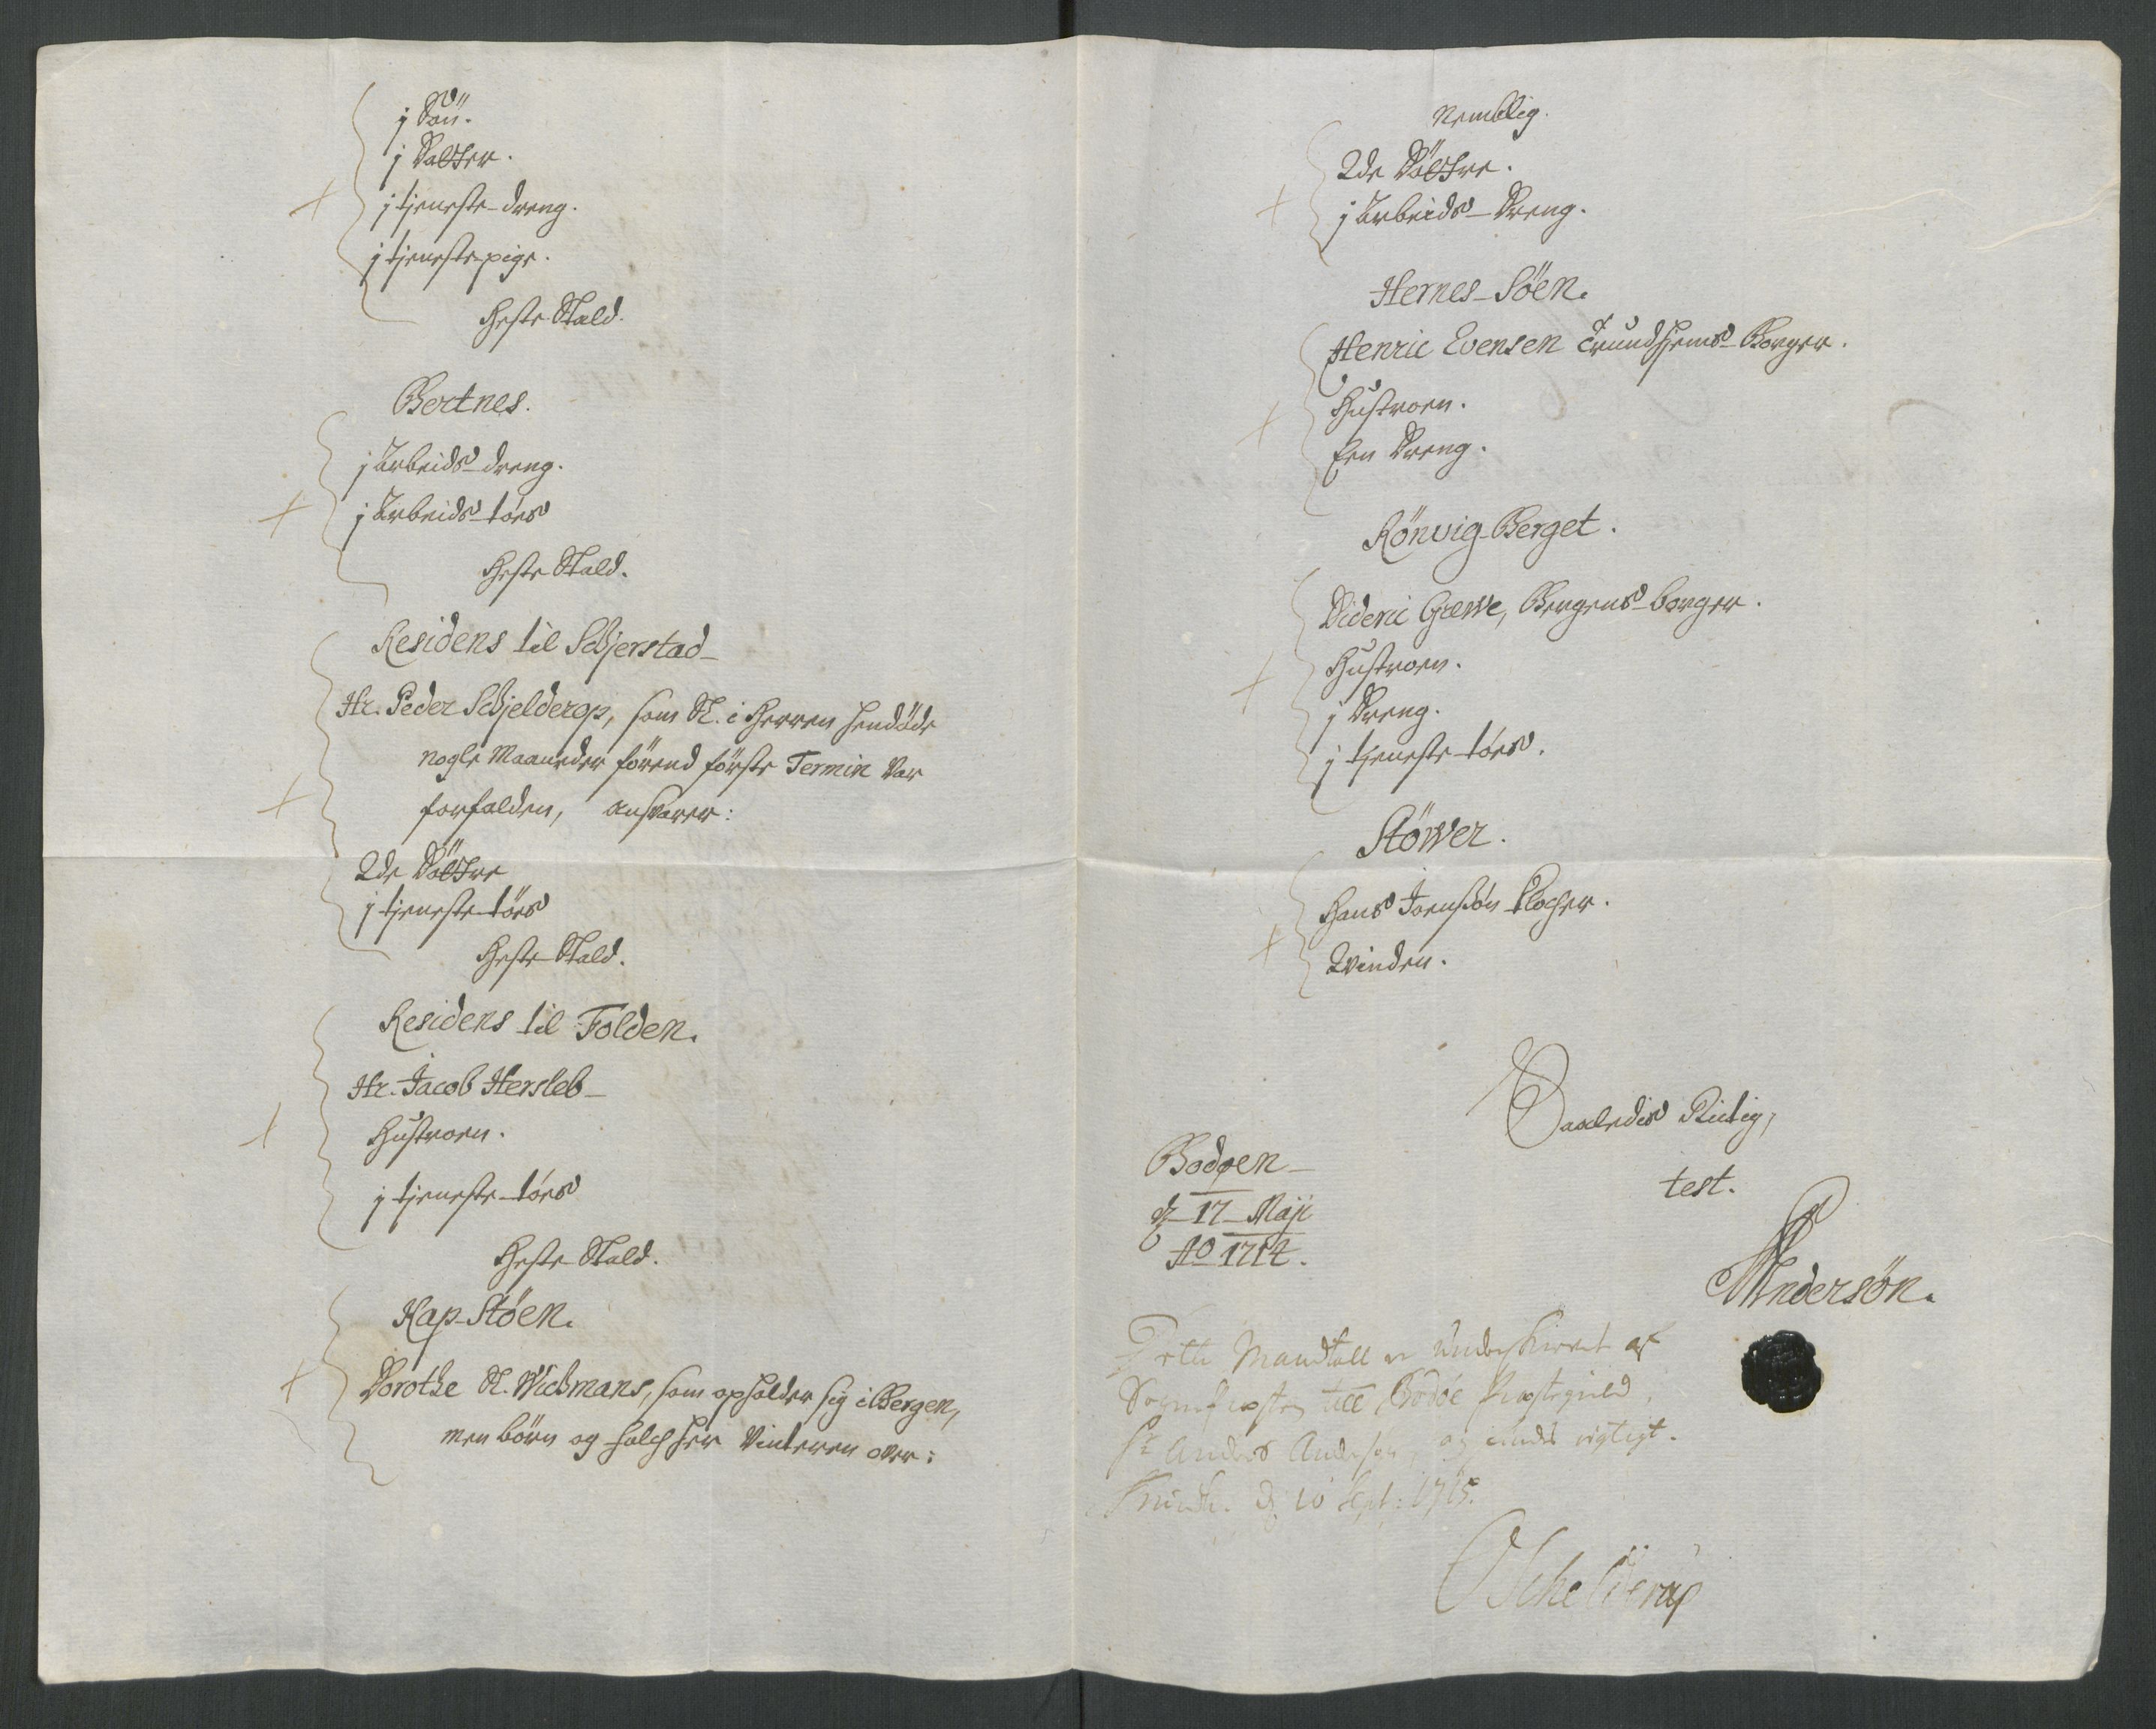 j Sön.
j Datter.
j tjeneste-dreng.
j tjeneste-pige.
Heste-Stald.
Bertnes.
j Arbeids-dreng.
j Arbeids-tøes
Heste-Stald.
Residens til Schjerstad-
Hr. Peder Schjelderop, som St. i Herren hendøde
nogle Maaneder förend förste Termin var
forfalden, ansvarer:
2de Döttre
j tjeneste-töes
Heste-Stald.
Residens til Folden.
Hr. Jacob Hersleb-
Hustroen.
j tjeneste-töes
Heste-Stald.
Hap-Stöen.
Dorothe St. Wichmans, som opholder sig i Bergen,
men börn og folch her Vinteren over:
Nemblig.
2de Döttre.
j Arbeids-Dreng.
Hernes-Söen.
Henric Evensen Trundhjems-Borger.
Hustroen.
Een Dreng.
Rönvig-Berget.
Dideric Greve, Bergens-borger.
Hustroen.
j Dreng.
j tjeneste-töes.
Stöwer.
Hans Joensøn Klocher.
Qvinden.
Saaledis Rictig,
test.
Bodøen-
d. 17 Maji
Ao 1714.
Andersön.
Dette Mandtall er underskrevet af
Sognepresten till Bodöe Prestegield,
Hr Anders Andersøn, og eendis rigtigt.
d. 10 Sept: 1715.
Schelderup